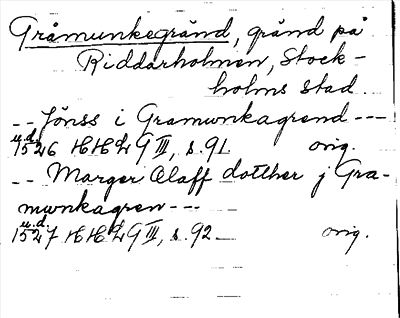 Gråmunkegränd, gränd på
Riddarholmen, Stock-
holms stad.
-- Jönss i Gramunkagrend ---
u.d.
1526 HH 9 III, s. 91 orig.
-- Marger Olaff dotther j Gra-
munkagren ---
u.d.
1527 HH 9 III, s. 92 orig.